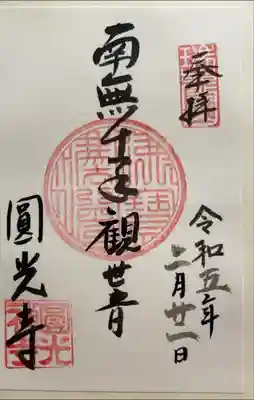 奉拝
令和五年
二月廿一日
南無千手観世音
圓光寺